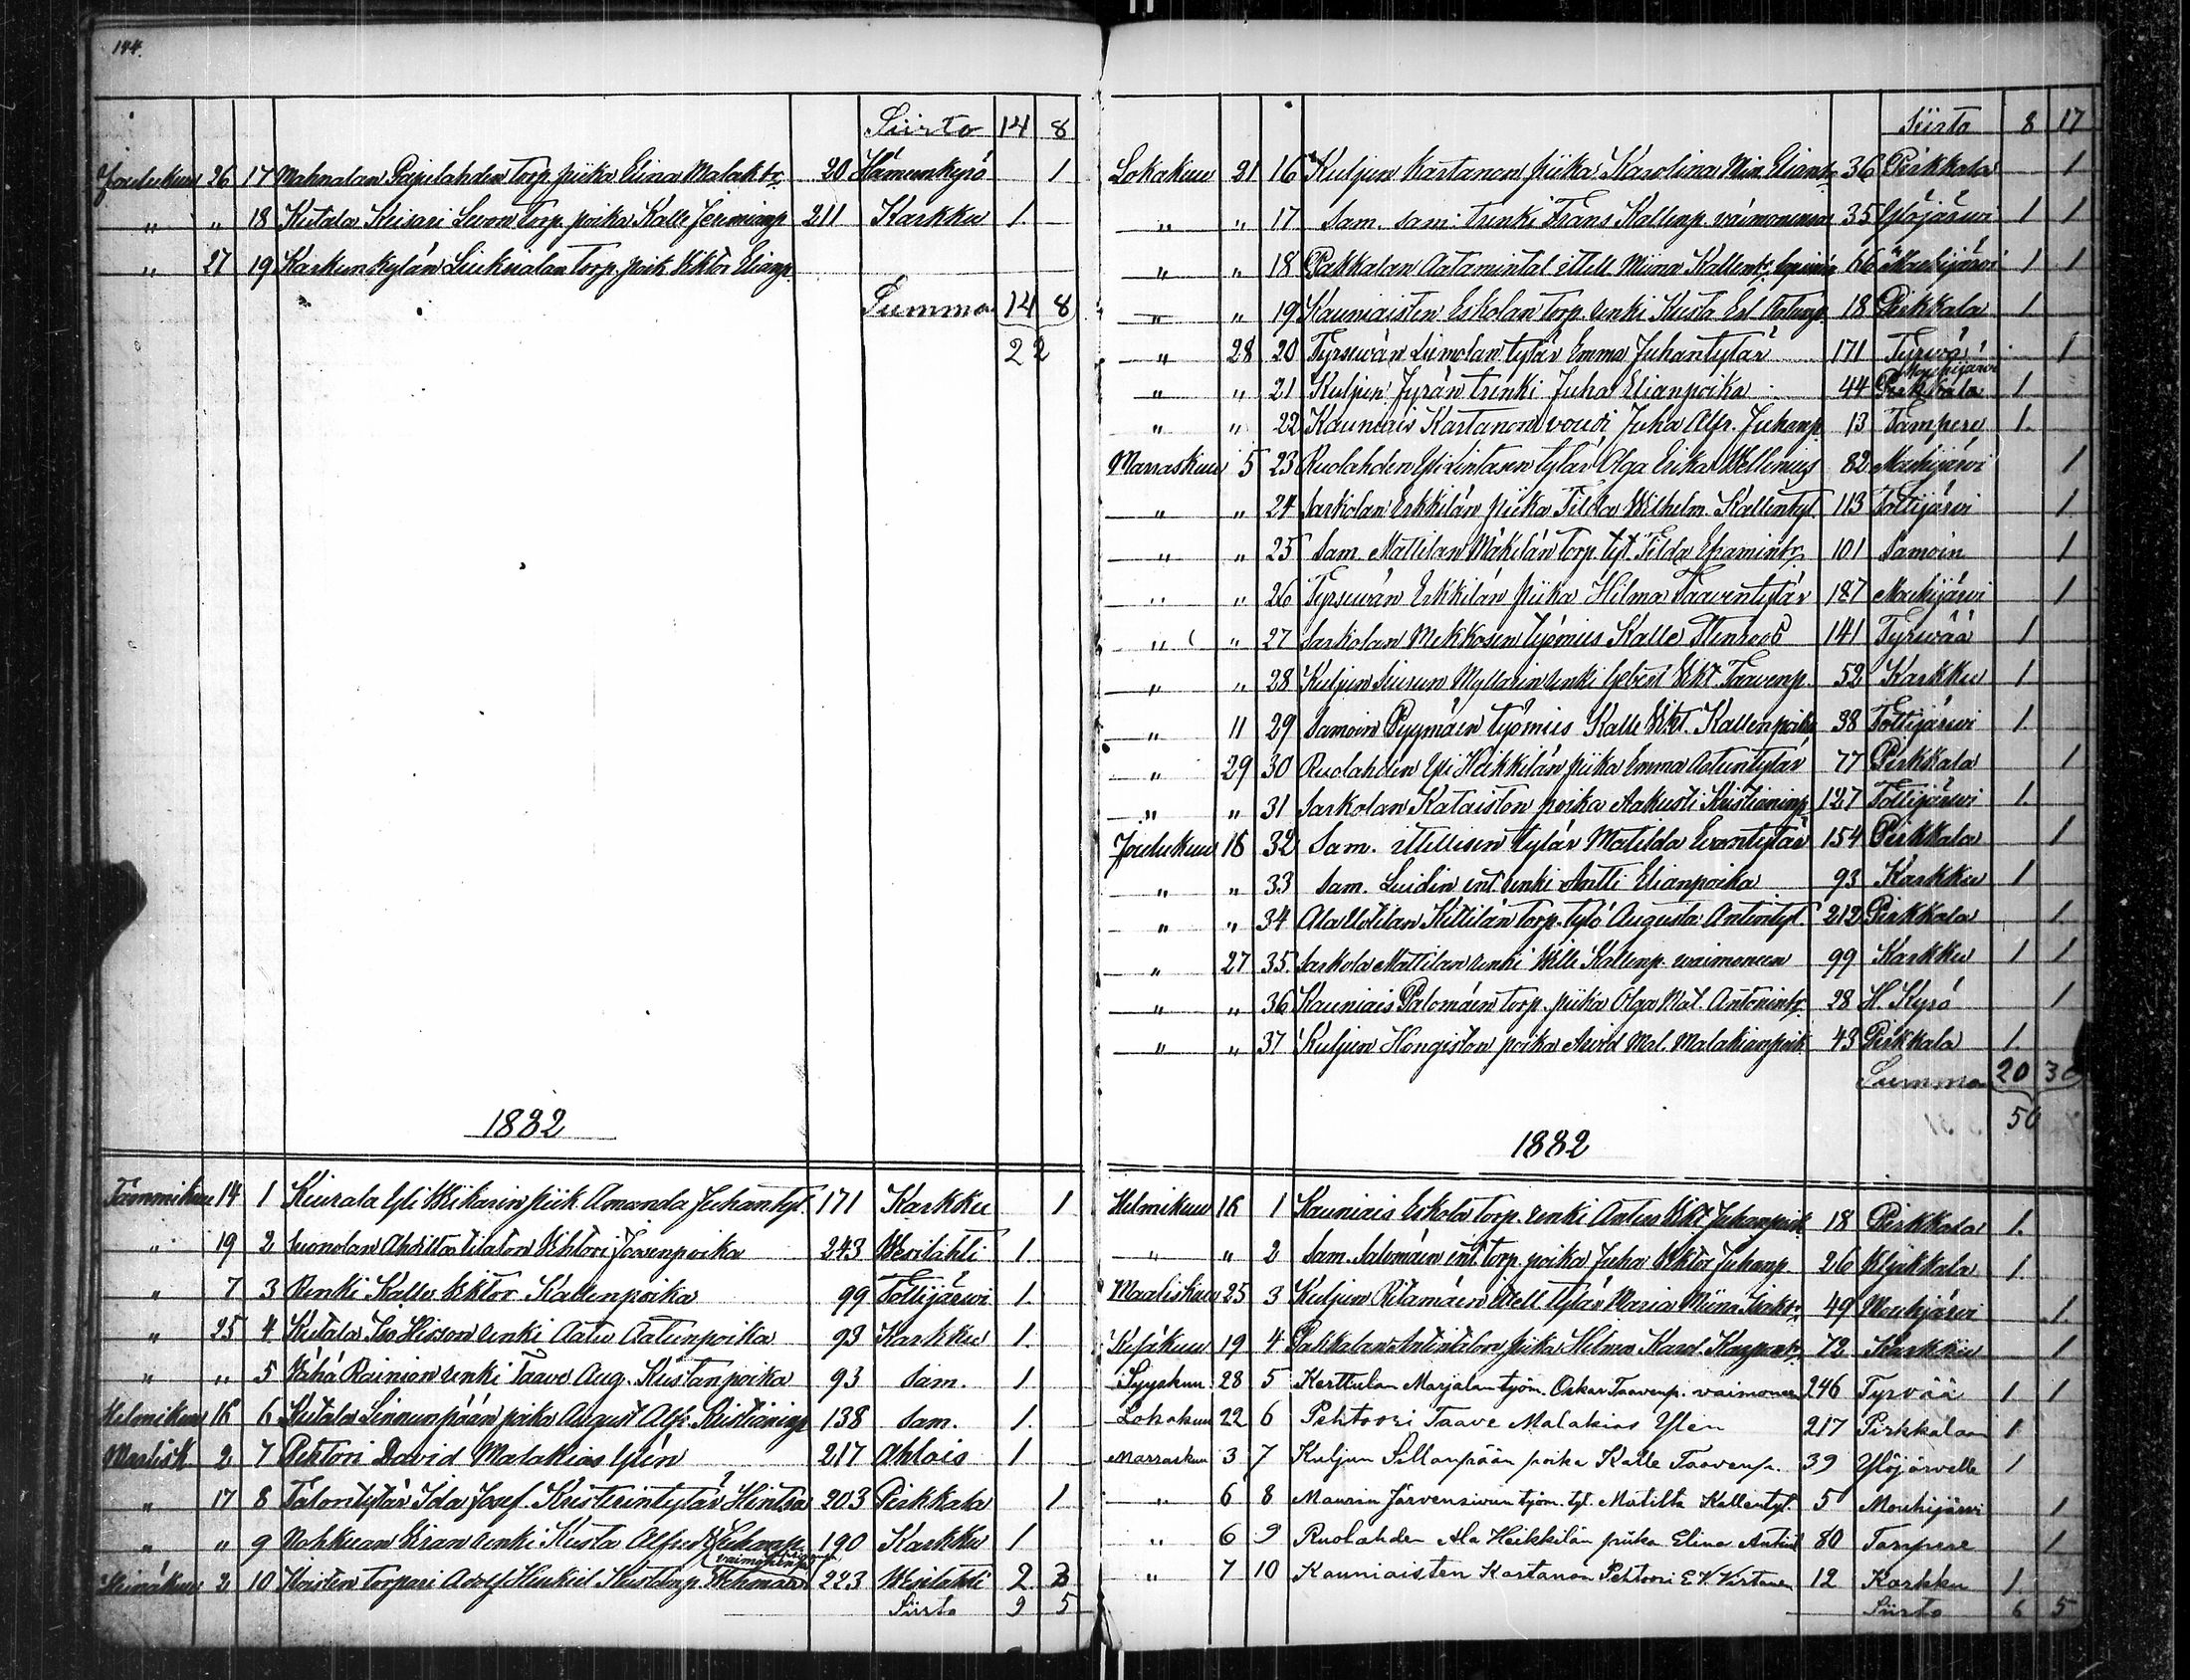 144.
Siirto 14 8
Joulukuu 26 17 Mahnalan Papilahden torp. piika Elina Malak.tr. 20 Hämeenkyrö 1
" " 18 Kutala Keisari Luon torp. poika Kalle Jeremianp. 211 Karkku 1.
" 27 19 Karkunkylän Liuksialan torp. poik. Viktor Elianp.
Summa 14 8
22
1882
Tammikuu 14 1 Kiurala Yli Wikarin piik. Amanda Juhantyt. 171 Karkku 1
" 19 2 Ahdittoa tilaton Vihtori Joosenpoika 243 Wesilahti 1.
" 7 3 Renki Kalle Viktor Kallenpoika 99 Tottijärwi 1.
" 25 4 Kutala Iso Hisson renki Aatu Aatunpoika 93 Karkku 1.
" " 5 Vähä Rainion renki Taave Aug. Kustanpoika 93 sam. 1
Helmikuu 16 6 Kutala Linnunpään poika August Alfr. Kristianinp. 138 sam. 1.
Maalisk. 2 7 Pehtori David Malakias Ylén 217 Ahlais 1
" 17 8 Talontytär Ida Josef. Kristerintytär Hintsa 203 Pirkkala 1
" " 9 Nohkuan renki Kusta Alfred Juhanp. 190 Karkku 1
Heinäkuu 2 10 torpari Adolf Kustanp. 223 Wesilahti 2 3
Siirto 9 5
Siirto 8 17
Lokakuu 21 16 Kuljun Kartanon piika Karolina Min. Eliantr. 36 Pirkkala 1
" " 17 Sam. sam: trenki Frans Kallenp. vaimonensa 35 Ylöjärwi 1 1
" " 18 Pakkalan Aatamintal. ittell. Miina Kallentr. 66 Mouhijärvi 1 1
" " 19 Kauniaisten Eskolan torp. renki Kusta Erl. Aatunp. 18 Pirkkala 1.
" 28 20 Tyrswän Liimolan tytär Emma Juhantytär 171 Tyrwää 1
" " 21 Kuljun Jyrän trenki Juha Elianpoika 44 Pirkkala Mouhijärvi 1.
" " 22 Kauniais Kartanon vouti Juha Alfr. Juhanp. 13 Tampere 1.
Marraskuu 5 23 Ruolahden Yli Lintasen tytär Olga Erika Wellenius 82 Mouhijärvi 1
" " 24 Sarkolan Erkkilän piika Tilda Wilhelm. Kallentyt. 113 Tottijärwi 1
" " 25 Sam. Mattilan Mäkilän torp. tyt. Tilda Efraimintr. 101 Samoin 1
" " 26 Tyrswän Erkkilän piika Hilma Taaventytär 187 Mouhijärvi 1
" " 27 Sarkolan Mikkosen työmies Kalle Stenroos 141 Tyrwää 1
" " 28 Kuljun Myllärin renki Vikt. Taavenp. 52 Karkku 1.
" 11 29 Samoin Pyymäen työmies Kalle Vikt. Kallenpoika 38 Tottijärwi 1.
" 29 30 Ruolahden Yli Heikkilän piika Emma Aatuntytär 77 Pirkkala 1
" " 31 Sarkolan Kataiston poika Aakusti Kristianinp. 127 Tottijärwi 1.
Joulukuu 16 32 Sam. ittellisen tytär Matilda Evantytär 154 Pirkkala 1
" " 33 Sam. Luidin ent. renki Antti Elianpoika 93 Karkku 1
" " 34 Ala Uotilan Kittilän torp. tytö Augusta Antintyt. 212 Pirkkala 1.
" 27 35. Sarkola Mattilan renki Wille Kallenp. waimoneen 99 Karkku 1 1
" " 36 Kauniais Palomäen torp. piika Olga Mat. Antonintr. 28 H. Kyrö 1
" " 37 Kuljun Hongiston poika Arvid Mal. Malakianpoik. 43 Pirkkala 1.
Summa 20 30
50
1882
Helmikuu 16 1 Kauniais Eskola torp. renki Antus Vikt. Juhanpoik. 18 Pirkkala 1.
" " 2 Sam. Salomäen ent. torp. poika Juha Viktor Juhanp. 26 Kljakkala 1.
Maaliskuu 25 3 Kuljun Ritamäen ittell. tytär Maria Miina Isaktr. 49 Mouhijärvi 1.
Kesäkuu 19 4 Pakkalan Antintalon piika Hilma Karol. 72 Karkku 1
Syyskuu 28 5 Kerttulan Marjalan työm. Oskar Taavenp. vaimoneen 246 Tyrvää 1 1
Lokakuu 22 6 Pehtoori Taave Malakias Ylen 217 Pirkkalaan 1
Marraskuu 3 7 Kuljun Sillanpään poika Kalle Taavenp. 39 Ylöjärvelle 1
" 6 8 Maurin Järvensivun työm. tyt. Matilta Kallentyt. 5 Mouhijärvi 1
" 6 9 Ruolahden Ala Heikkilän piika Elina Antint. 80 Tampere 1
" 7 10 Kauniaisten Kartanon Pehtoori E. V. Virtanen 12 Karkku 1
Siirto 6 5